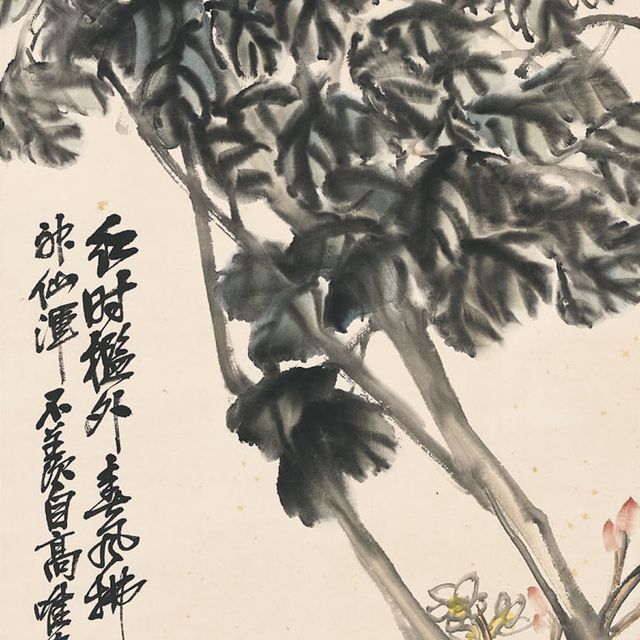 红时檻外春风拂
神仙渾不羡自高唯